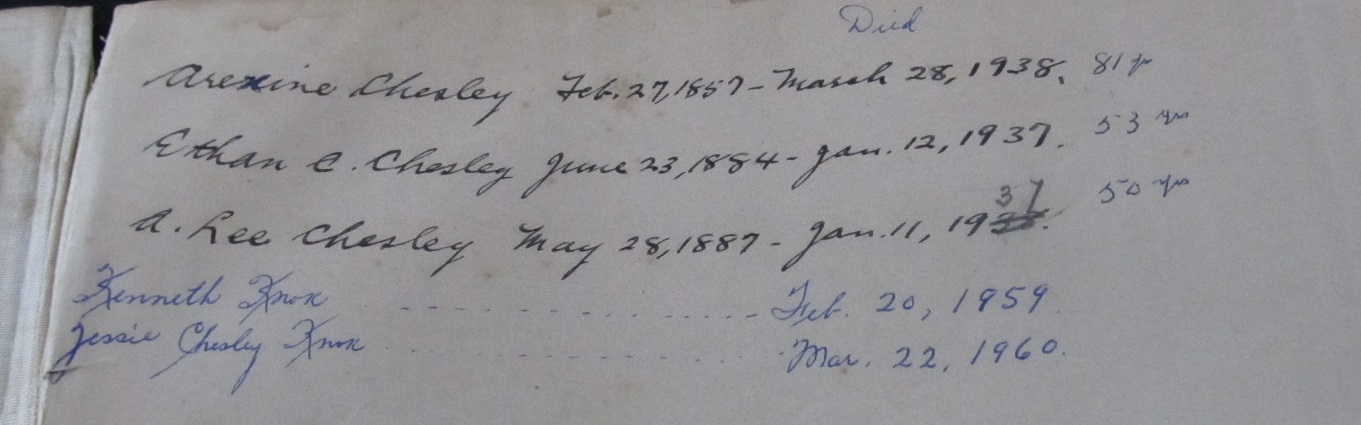 Died
Arexine Chesley Feb. 27, 1857 - March 28, 1938. 81 yr
Ethan C. Chesley June 23, 1884 - Jan. 12, 1937. 53 yrs
A. Lee Chesley May 28, 1887 - Jan. 11, 1937. 50 yrs
Kenneth Knox Feb. 20, 1959.
Jessie Chesley Knox Mar. 22, 1960.